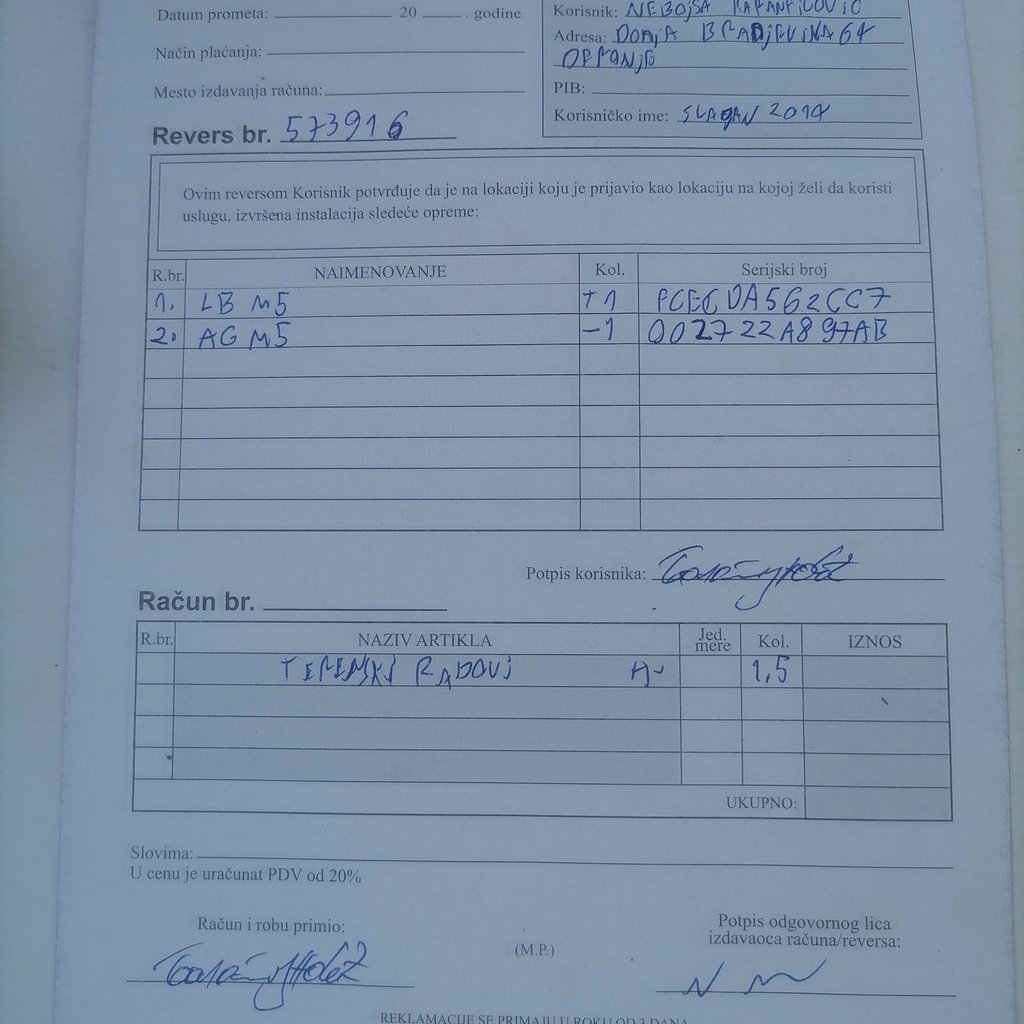 Datum prometa: ____ 20 ____. godine
Način plaćanja:
Mesto izdavanja računa:
Korisnik: NEBOJSA
Adresa: DONJA BRADJEVINA 64
PIB:
Korisničko ime: SLAGAN 2014
Revers br. 573916
Ovim reversom Korisnik potvrđuje da je na lokaciji koju je prijavio kao lokaciju na kojoj želi da koristi
uslugu, izvršena instalacija sledeće opreme:
R.br. NAIMENOVANJE Kol. Serijski broj
1. LB M5 +1
2. AG M5 -1 002722A897AB
Potpis korisnika:
Račun br.
R.br. NAZIV ARTIKLA Jed. mere Kol. IZNOS
TERENSKI RADOVI A- 1,5
UKUPNO:
Slovima:
U cenu je uračunat PDV od 20%
Račun i robu primio:
(M.P.)
Potpis odgovornog lica
izdavaoca računa/reversa:
REKLAMACIJE SE PRIMAJU U ROKU OD 3 DANA